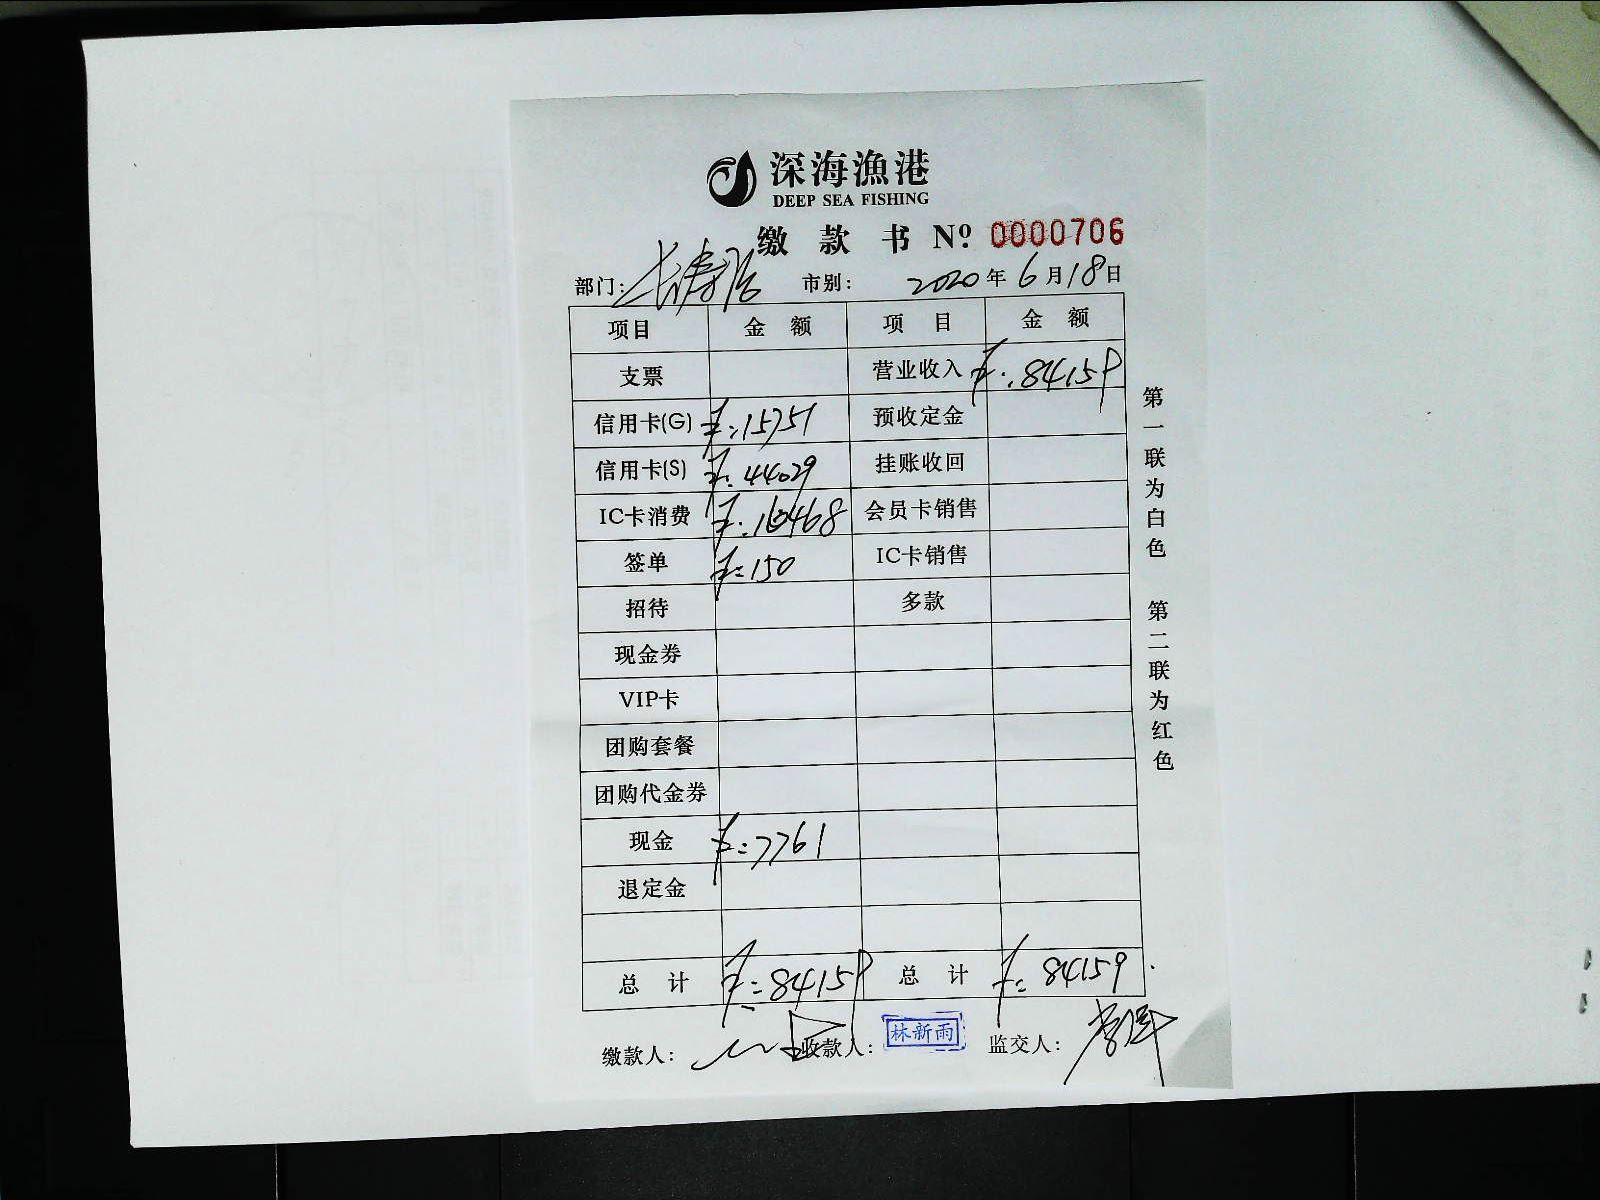 深海漁港
DEEP SEA FISHING
缴款书 Nº 0000706
部门： 市别： 2020年6月18日
项目 金额 项目 金额
支票 营业收入 ¥:84159
信用卡(G) ¥:15751 预收定金
信用卡(S) ¥:44029 挂账收回
IC卡消费 ¥:16468 会员卡销售
签单 ¥:150 IC卡销售
招待 多款
现金券
VIP卡
团购套餐
团购代金券
现金 ¥:7761
退定金
总计 ¥:84159 总计 ¥:84159
缴款人： 收款人： 林新雨 监交人：
第一联为白色 第二联为红色